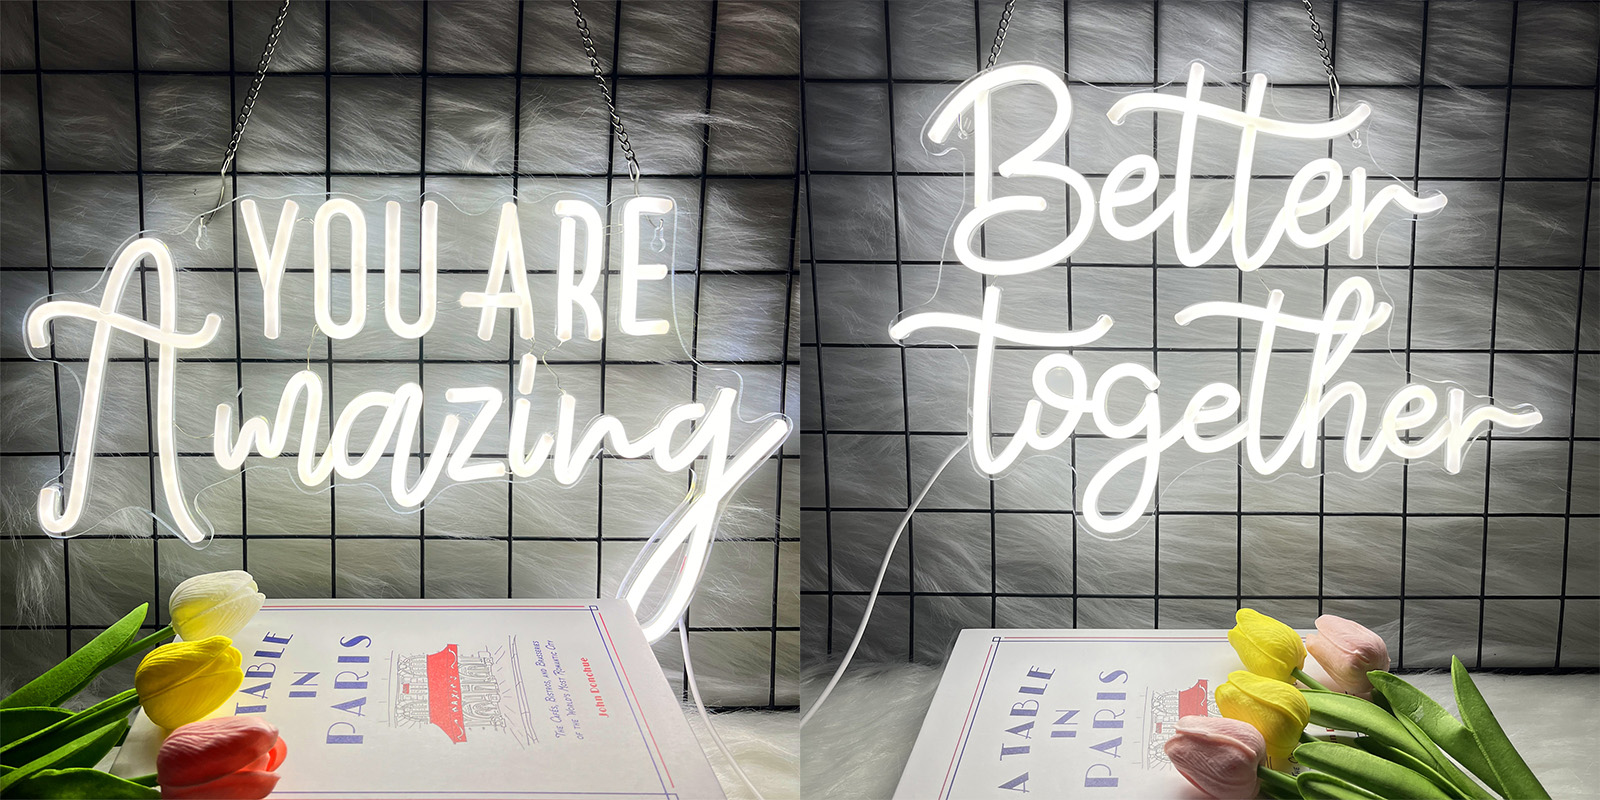 YOU ARE
Amazing
A TABLE
IN
PARIS
THE CAFÉS, BISTROS, AND BRASSERIES
OF THE WORLD'S MOST ROMANTIC CITY
John Donohue
Better
together
A TABLE
IN
PARIS